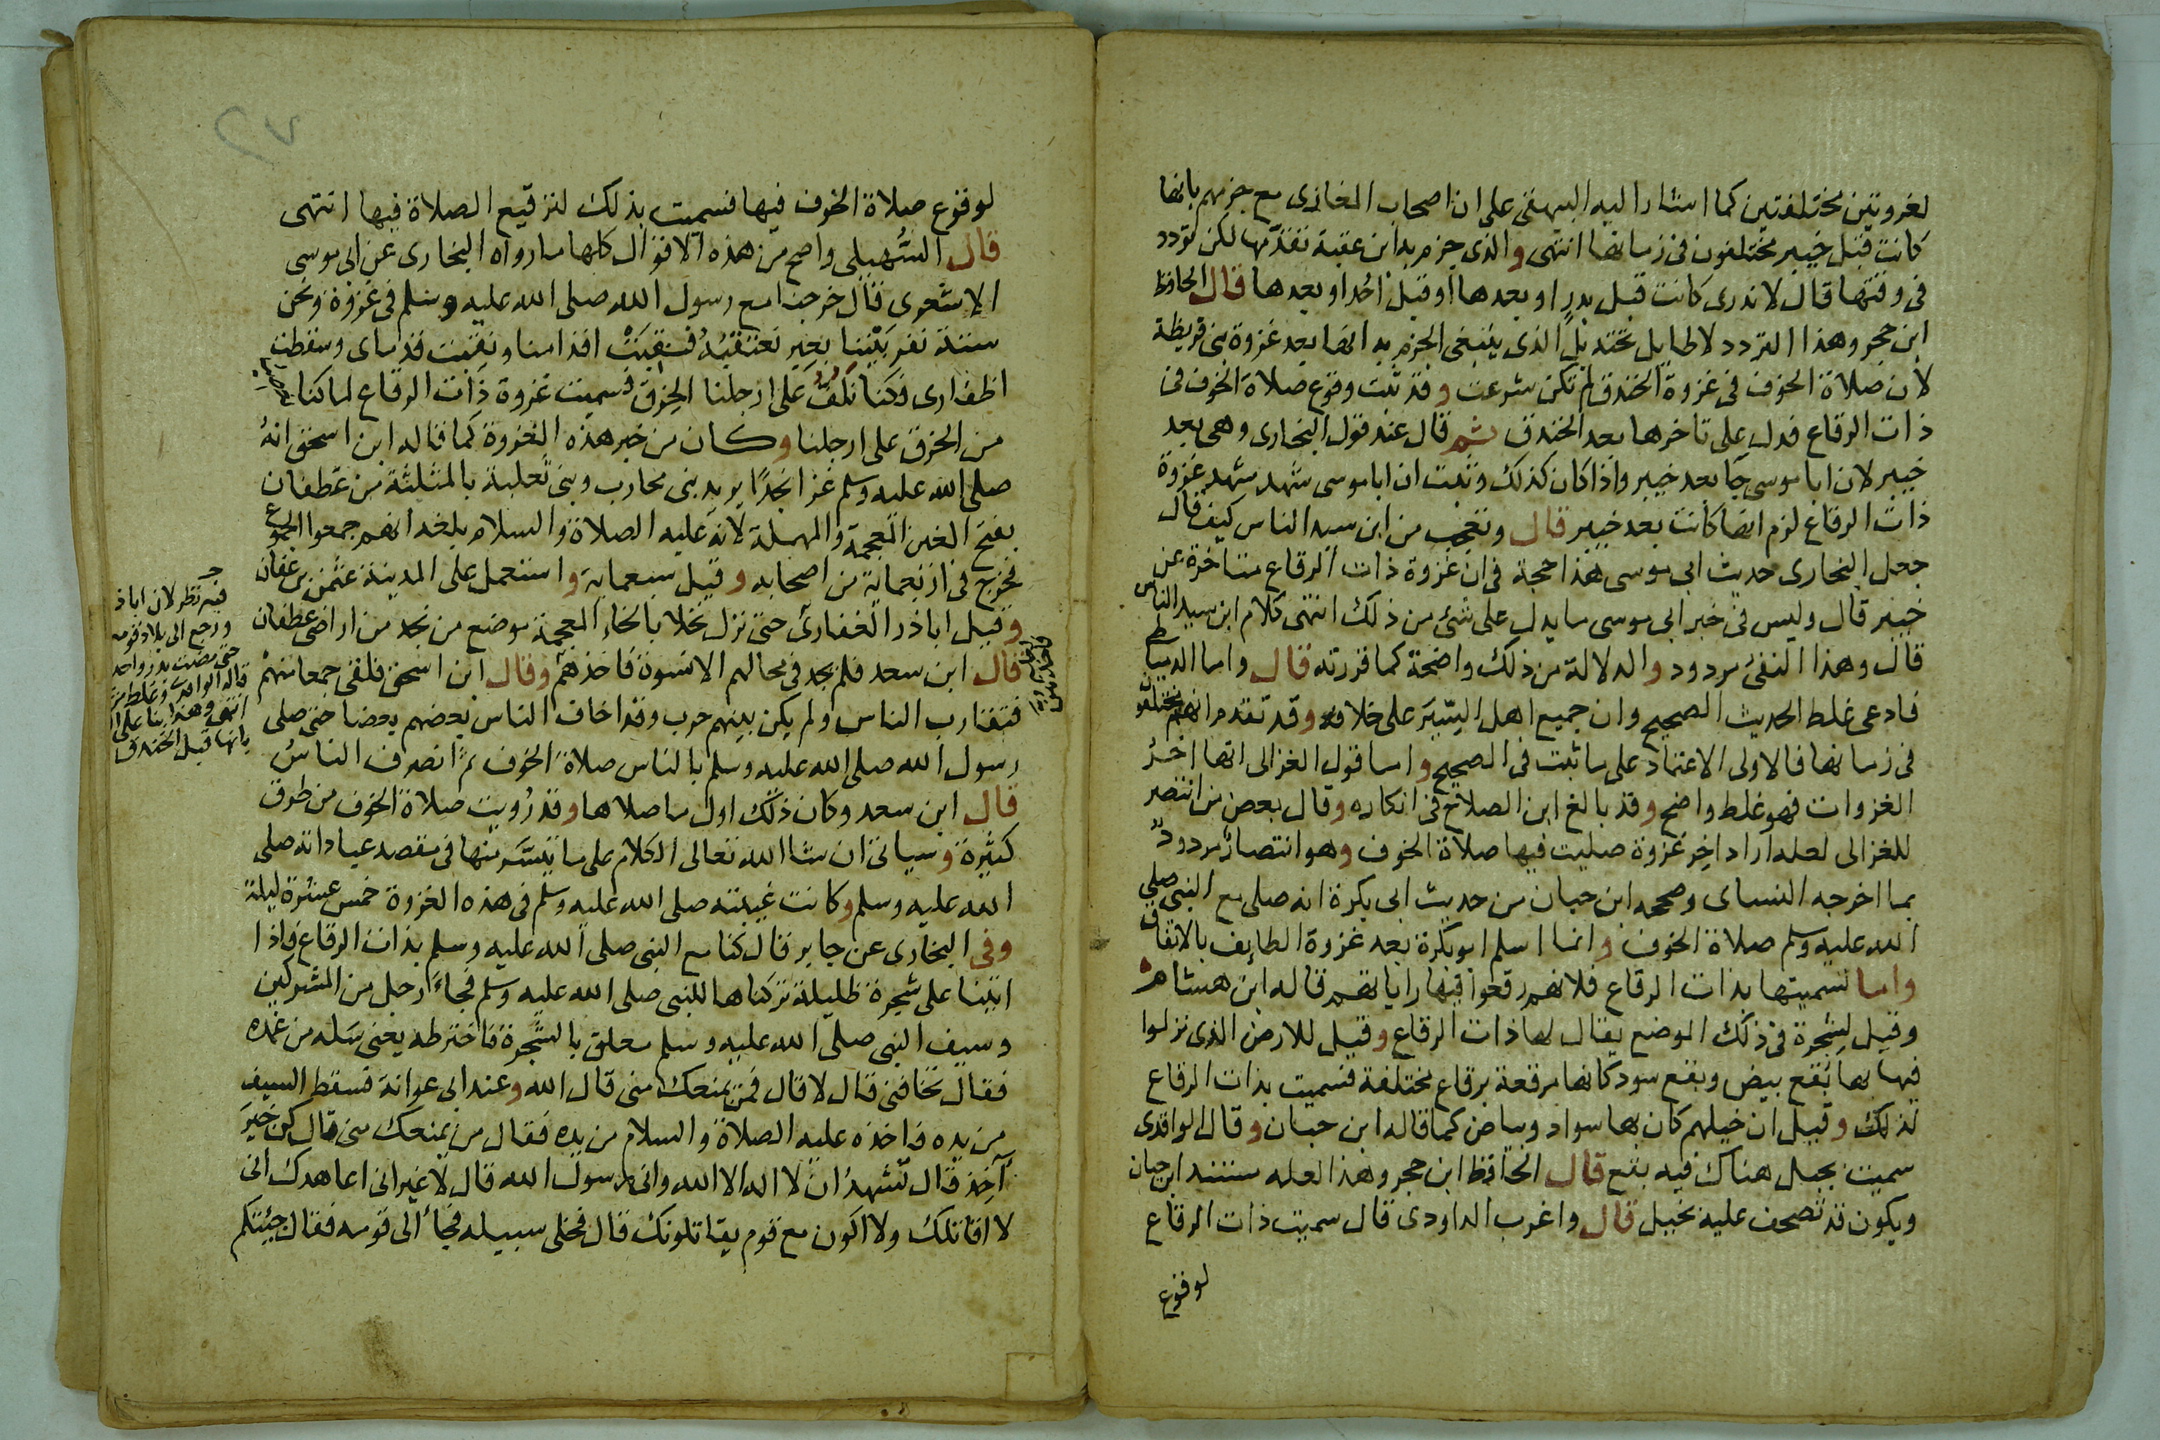 لغزوتين مختلفتين كما اشار اليه البيهقى على ان اصحاب المغازى مع جزمهم بانها
كانت قبل خيبر مختلفون فى زمانها انتهى والذى جزم به ابن عقبة تقدمها لكن تردد
فى وقتها قال لا ندرى كانت قبل بدر او بعدها او قبل احد او بعدها قال الحافظ
ابن حجر وهذا التردد لا طايل تحته بل الذى ينبغى الجزم به انها بعد غزوة بنى قريظة
لان صلاة الخوف فى غزوة الخندق لم تكن شرعت وقد ثبت وقوع صلاة الخوف فى
ذات الرقاع فدل على تاخرها بعد الخندق ثم قال عند قول البخارى وهى بعد
خيبر لان ابا موسى جا بعد خيبر واذا كان كذلك وثبت ان ابا موسى شهد شهد غزوة
ذات الرقاع لزم انها كانت بعد خيبر قال وتعجب من ابن سيد الناس كيف قال
جعل البخارى حديث ابى موسى هذا حجة فى ان غزوة ذات الرقاع متاخرة عن
خيبر قال وليس فى خبر ابى موسى ما يدل على شئ من ذلك انتهى كلام ابن سيد الناس
قال وهذا النفى مردود والدلالة من ذلك واضحة كما قررته قال واما الدمياطى
فادعى غلط الحديث الصحيح وان جميع اهل السير على خلافه وقد تقدم انهم مختلفون
فى زمانها فالاولى الاعتماد على ما ثبت فى الصحيح واما قول الغزالى انها اخر
الغزوات فهو غلط واضح وقد بالغ ابن الصلاح فى انكاره وقال بعض من انتصر
للغزالى لعله اراد اخر غزوة صليت فيها صلاة الخوف وهو انتصار مردود
بما اخرجه النساى وصححه ابن حبان من حديث ابى بكرة انه صلى مع النبى صلى
الله عليه وسلم صلاة الخوف وانما اسلم ابو بكرة بعد غزوة الطايف بالاتفاق
واما تسميتها بذات الرقاع فلانهم رقعوا فيها راياتهم قاله ابن هشام
وقيل لشجرة فى ذلك الموضع يقال لها ذات الرقاع وقيل للارض الذى نزلوا
فيها بها بقع بيض وبقع سود كانها مرقعة برقاع مختلفة فسميت بذات الرقاع
لذلك وقيل ان خيلهم كان بها سواد وبياض كما قاله ابن حبان وقال الواقدى
سميت بجبل هناك فيه بقع قال الحافظ ابن حجر وهذا لعله مستند ابن حبان
ويكون قد تصحف عليه بخيل قال واغرب الداودى قال سميت ذات الرقاع
لوقوع
لوقوع صلاة الخوف فيها فسميت بذلك لترقيع الصلاة فيها انتهى
قال السهيلى واصح من هذه الاقوال كلها ما رواه البخارى عن ابى موسى
الاشعرى قال خرجنا مع رسول الله صلى الله عليه وسلم فى غزوة ونحن
ستة نفر بيننا بعير نعتقبه فنقبت اقدامنا ونقبت قدماى وسقطت
اظفارى فكنا نلف على ارجلنا الخرق فسميت غزوة ذات الرقاع لما كنا نعصب
من الخرق على ارجلنا وكان من خبر هذه الغزوة كما قاله ابن اسحق انه
صلى الله عليه وسلم غزا نجدا يريد بنى محارب وبنى ثعلبة بالمثلثة من غطفان
بفتح الغين المعجمة والمهملة لانه عليه الصلاة والسلام بلغه انهم جمعوا الجموع
فخرج فى اربعماية من اصحابه وقيل سبعماية واستعمل على المدينة عثمن بن عفان
وقيل اباذر الغفارى حتى نزل نخلا بالخاء المعجمة موضع من نجد من اراضى غطفان
قال ابن سعد فلم يجد فى محالهم الا نسوة فاخذهم وقال ابن اسحق فلقى جمعا منهم
فتقارب الناس ولم يكن بينهم حرب وقد اخاف الناس بعضهم بعضا حتى صلى
رسول الله صلى الله عليه وسلم بالناس صلاة الخوف ثم انصرف الناس
قال ابن سعد وكان ذلك اول ما صلاها وقد رويت صلاة الخوف من طرق
كثيرة وسياتى ان شا الله تعالى الكلام على ما تيسر منها فى مقصد عباداته صلى
الله عليه وسلم وكانت غيبته صلى الله عليه وسلم فى هذه الغزوة خمس عشرة ليلة
وفى البخارى عن جابر قال كنا مع النبى صلى الله عليه وسلم بذات الرقاع فاذا
اتينا على شجرة ظليلة تركناها للنبى صلى الله عليه وسلم فجاء رجل من المشركين
وسيف النبى صلى الله عليه وسلم معلق بالشجرة فاخترطه يعنى سله من غمده
فقال تخافنى قال لا قال فمن يمنعك منى قال الله وعند ابى عوانة فسقط السيف
من يده فاخذه عليه الصلاة والسلام من يده فقال من يمنعك منى قال كن خير
آخذ قال تشهد ان لا اله الا الله وانى رسول الله قال لا غير انى اعاهدك انى
لا اقاتلك ولا اكون مع قوم يقاتلونك قال فخلى سبيله فجا الى قومه فقال جيتكم
فيه نظر لان اباذر
ورجع الى بلاد قومه
حتى مضت بدر واحد
قاله الواقدى
انتهى وهذا بنا على
بانها قبل الخندق